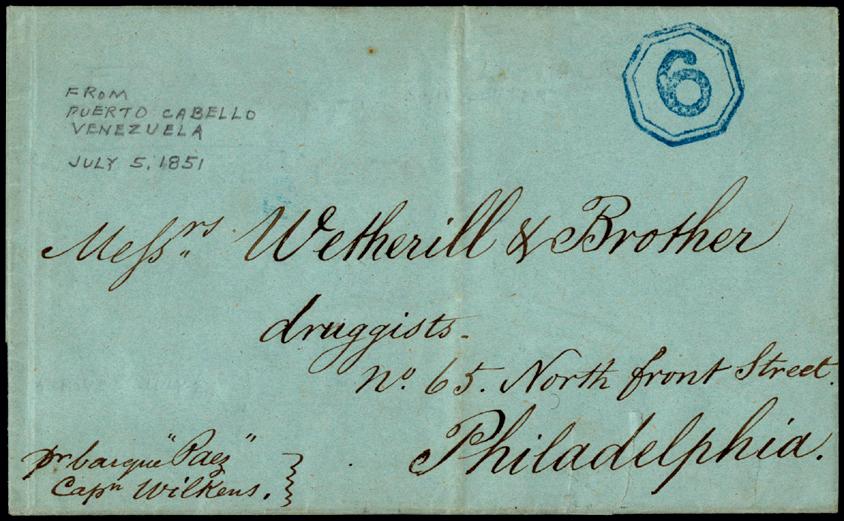 6
FROM
PUERTO CABELLO
VENEZUELA
JULY 5, 1851
Messrs Wetherill & Brother
druggists.
no. 65. North front Street.
Philadelphia.
pr barque "Paez"
Capn Wilkens.